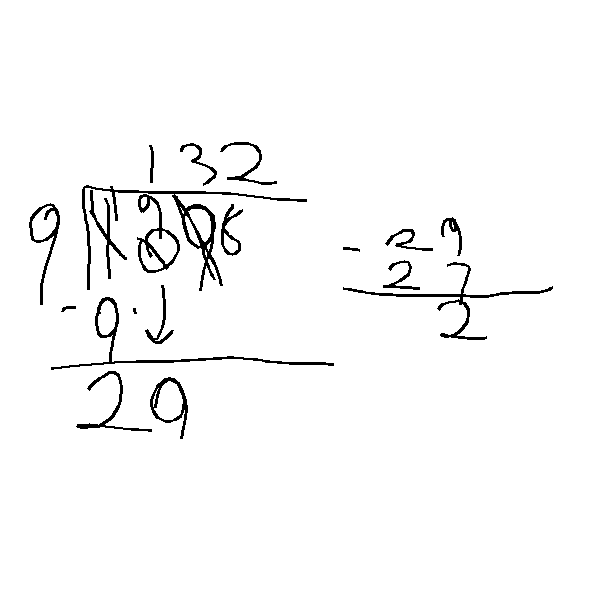 132
9 11 9 6
- 9 ↓
29
- 29
27
2